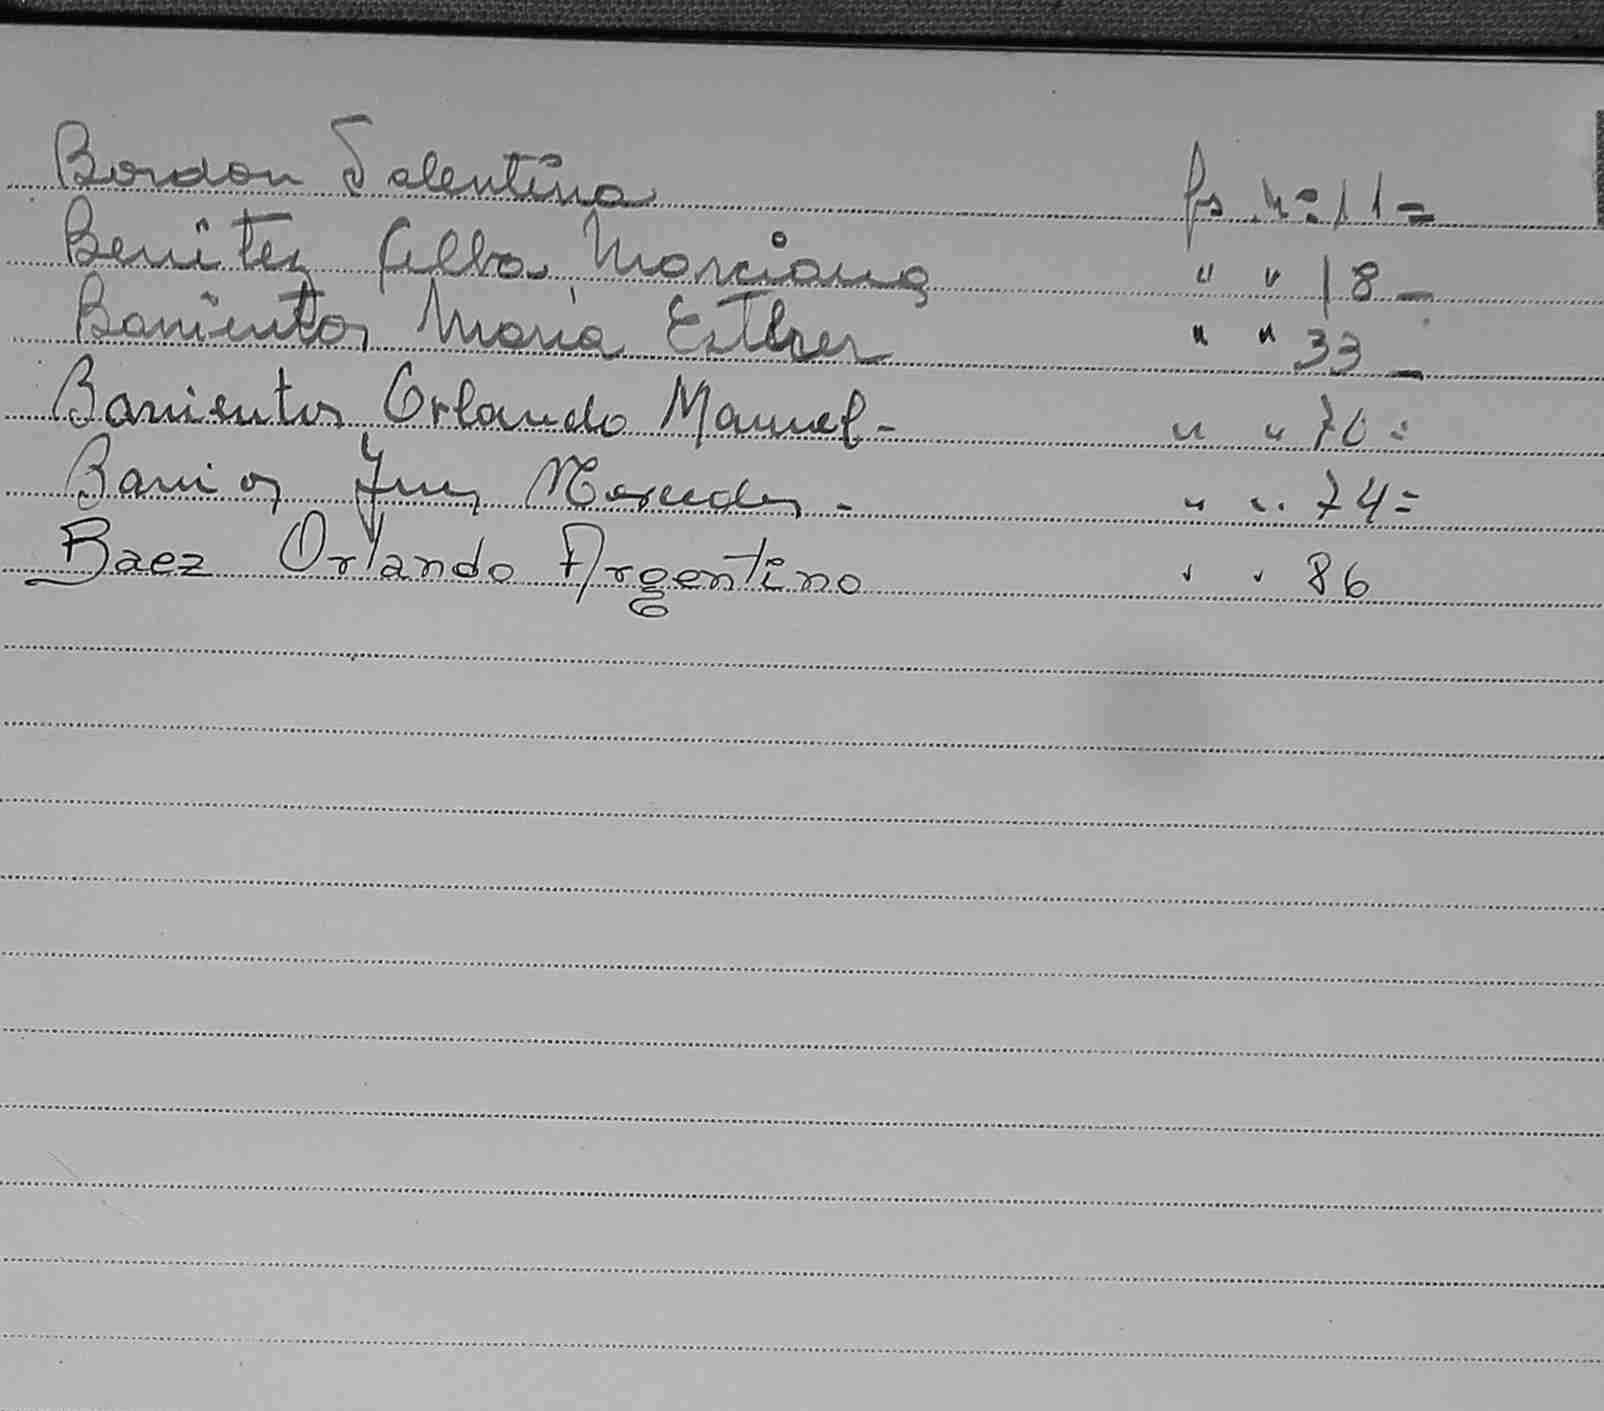 Bordon Valentina fs Nº 11=
Benitez Alba Marciana " " 18_
Barrientos María Esther " " 33_
Barrientos Orlando Manuel- " " 70=
Barrios Mercedes - " " 74=
Baez Orlando Argentino " " 86